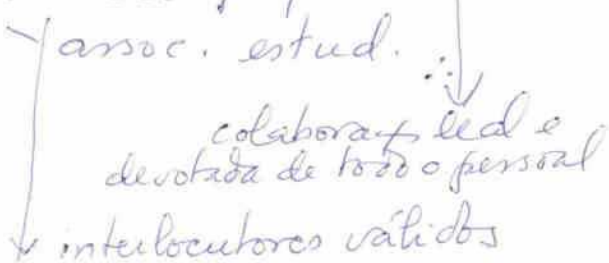 assoc. estud.
∴
colaboração leal e
devotada de todo o pessoal
interlocutores válidos